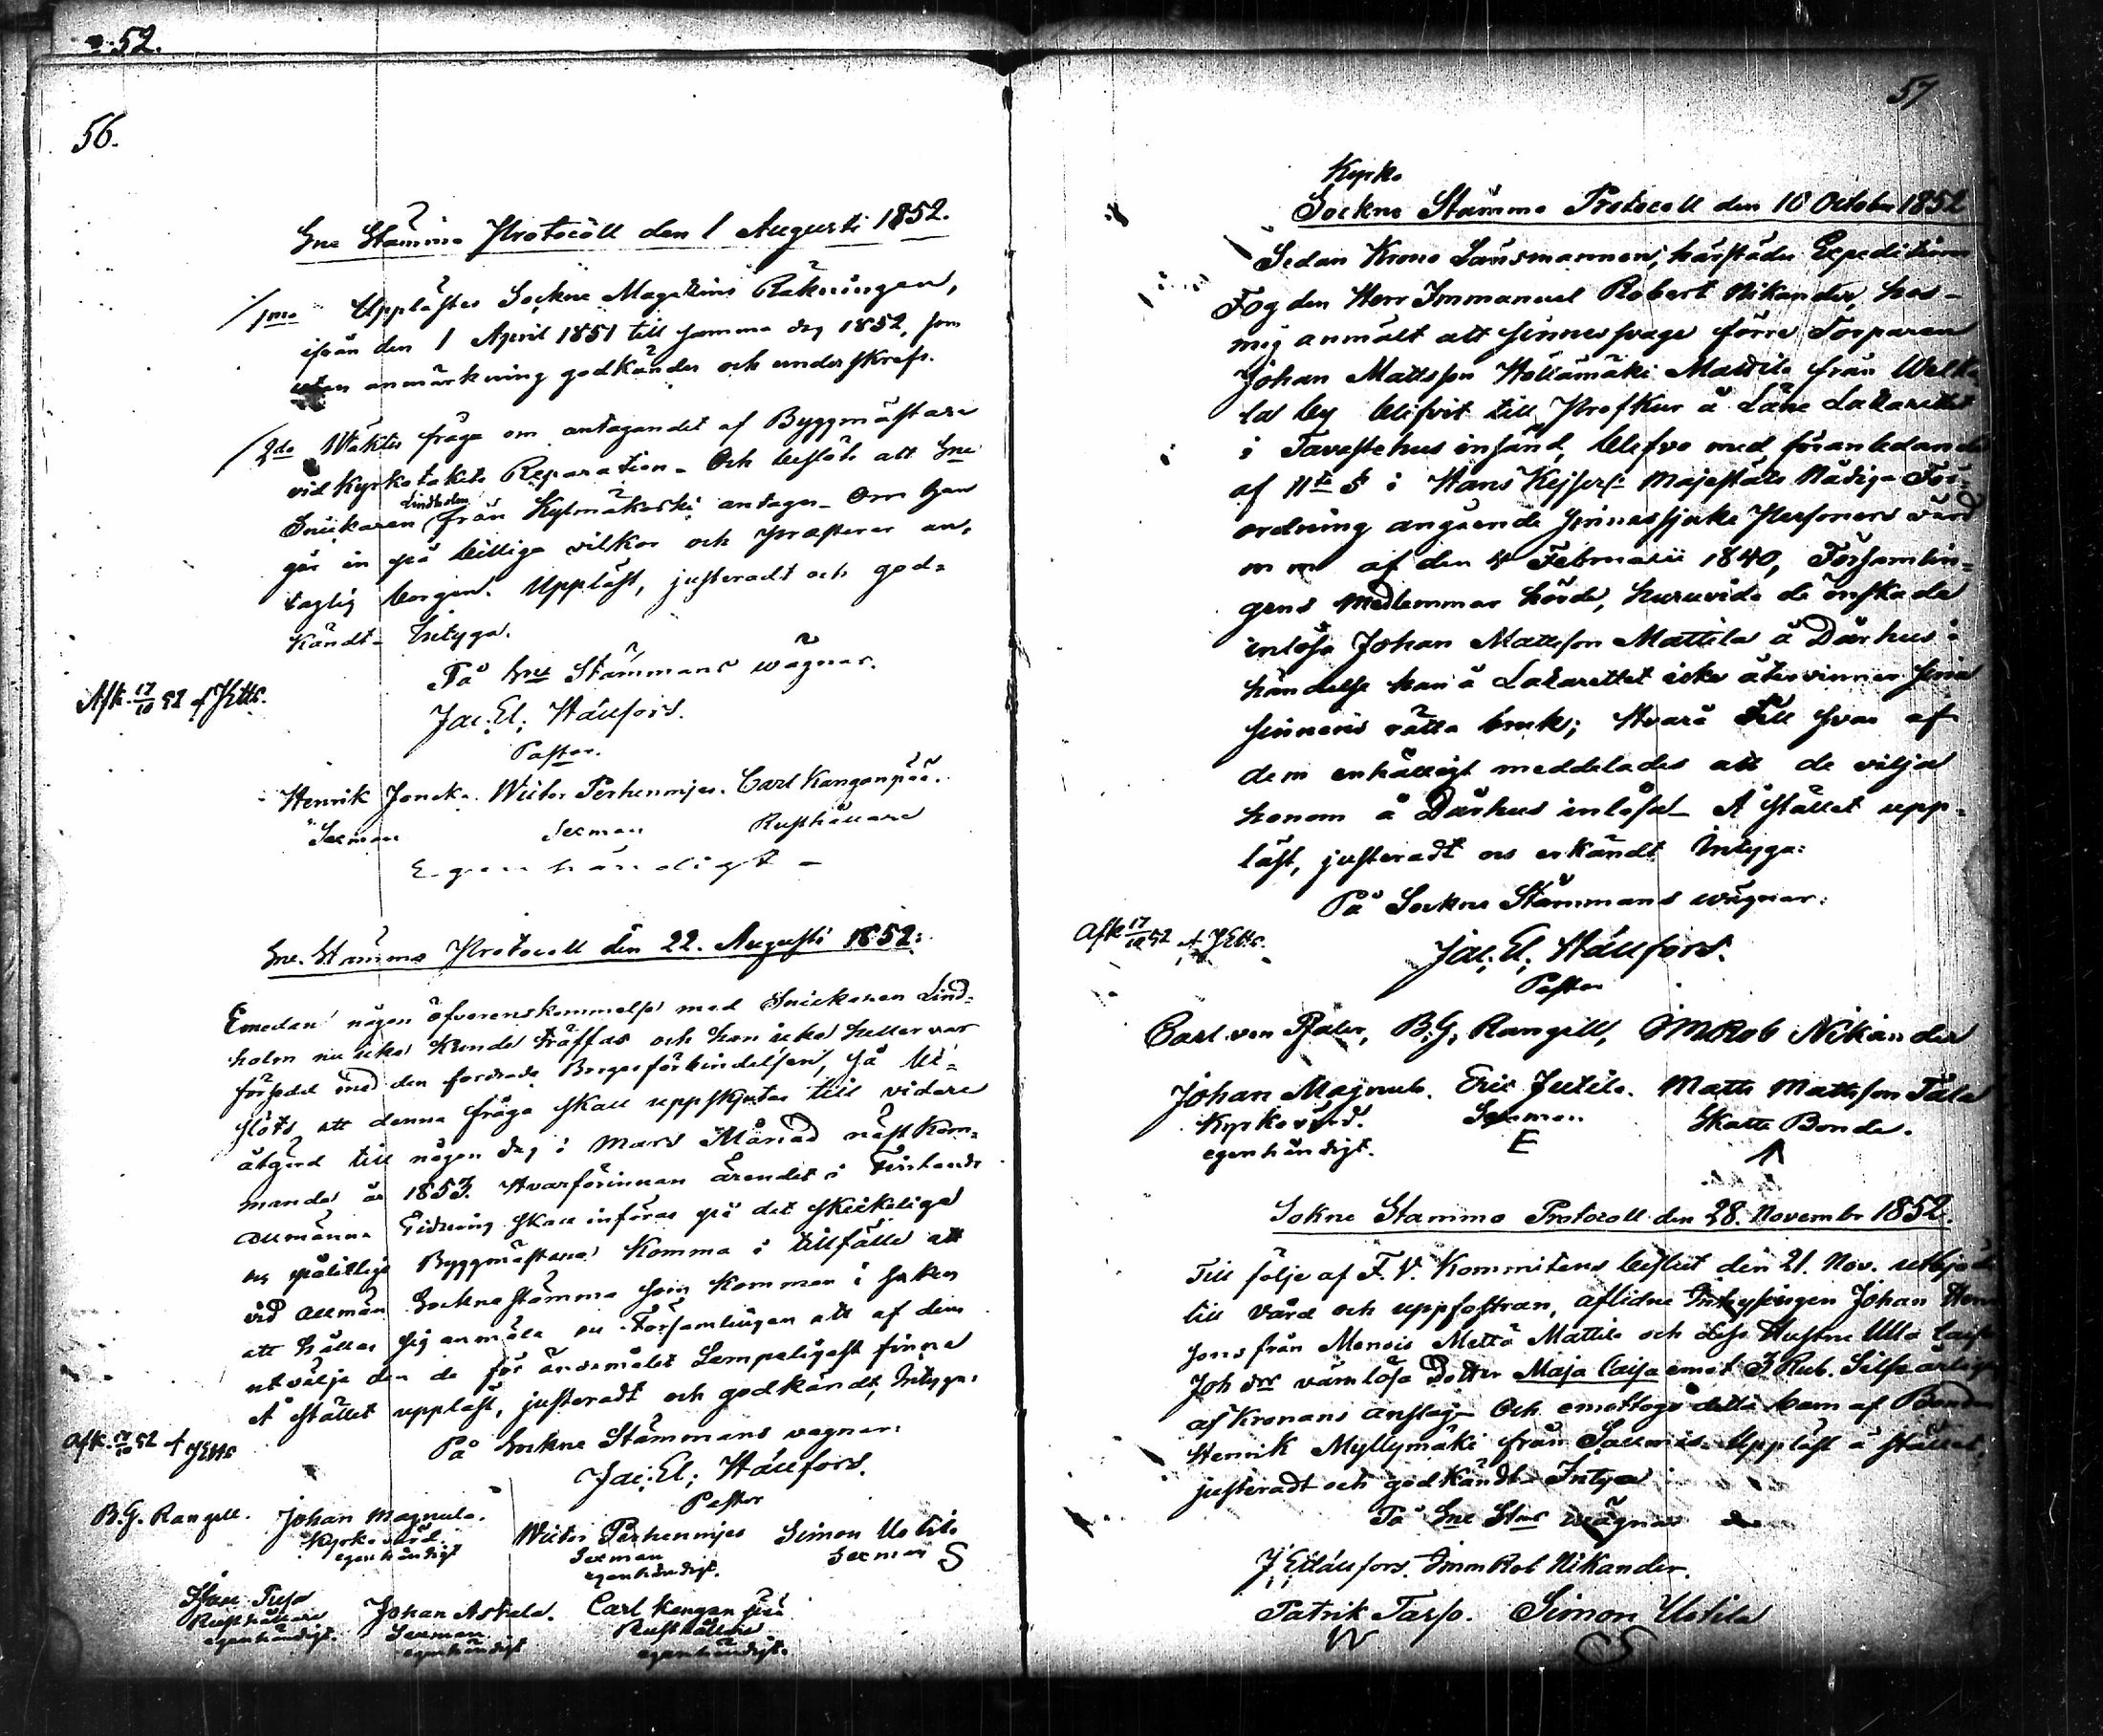 52.
56.
Sne Stämmo Protocoll den 1 Augusti 1852.
1mo Upplästes Sockne Magazins Räkningen,
ifrån den 1 April 1851 till samma dag 1852, som
utan anmärkning godkändes och underskrefs.
2do Wäktes fråga om antagandet af Byggmästare
vid Kyrkotakets Reparation. Och beslöts att Sne
Lindholm
Snickaren från Kylmäkoski antages. Om han
går in på billiga vilkor och præsterar an-
taglig borgen. Uppläst, justeradt och god-
kändt. Intyga.
På Sne Stämmans wägnar.
Jac. El. Hällfors.
Pastor.
Afk. 17/10 52 af JEHls.
Henrik Jonck. Wictor Perhenmies. Carl Kanganpää.
Sexman Sexman Rusthållare
Egenhändigt
Sne. Stämmo Protocoll den 22. Augusti 1852.
Emedan någon öfverenskommelse med Snickaren Lind-
holm nu icke kunde träffas och han icke heller var
försedd med den fordrade Borgesförbindelsen, så be-
slöts att denna fråga skall uppskjutas till vidare
åtgärd till någon dag i Mars Månad nästkom-
mande år 1853. Hvarförinnan ärendet i Finlands
Allmänna Tidning skall införas på det skickelige
och pålitlige Byggmästare komma i tillfälle att
vid allmän Sockne Stämma som kommer i saken
att hållas sig anmäla och Församlingen att af dem
utvälja den de för ändamålet Lämpeligast finna
Å stället uppläst, justeradt och godkändt, Intyga:
På Sockne Stämmans vagnar:
Jac. El. Hällfors.
Pastor
Afk. 17/10 52 af JEHls
B. G. Rangell. Johan Magnula. Wictor Perhenmies Simon Uotila
Kyrkovärd. Sexman Sexman S
egenhändigt egenhändigt.
Tusa Johan Askala. Carl Kanganpää
Rusthållare Sexman Rusthållare
egenhändigt. egenhändigt egenhändigt.
57
Kyrko
Sockne Stämmo Protocoll den 10 October 1852
Sedan Krono Länsmannen, härstädes Expeditions
Fogden Herr Immanuel Robert Nikander, hos
mig anmält att sinnessvage förre Torparen
Johan Mattsson Mattila från Walka-
la by blifvit till Profkur å Läne Lazarettet
i Tavastehus insänd, blefvo med föranledande
af 11te § i Hans Kejserl. Majestäts Nådiga För-
ordning angående sinnessjuke Personers vård
m m af den 4 Februarii 1840, Församlin-
gens Medlemmar hörde, huruvida de önskade
inlösa Johan Mattsson Mattila å Dårhus i
händelse han å Lazarettet icke återvinner sina
sinnens rätta bruk; Hvarå till svar af
dem enhälligt meddelades att de vilja
honom å Dårhus inlösa. Å stället upp-
läst, justeradt och erkändt Intyga:
På Sockne Stämmans wägnar:
Jac. El. Hällfors.
Pastor
Afk 17/10 52 af JEHls.
Carl von Pfaler, B. G. Rangell, Im Rob Nikander
Johan Magnula. Eric Jutila. Matts Mattsson Tala
Kyrkovärd. Sexman. Skatte Bonde.
egenhändigt. E
Sokne Stämmo Protocoll den 28. November 1852.
Till följe af F. V. Kommitens beslut den 21. Nov. utbjöds
till vård och uppfostran, aflidne Inhysingen Johan
sons från Menois Mattila och dess Hustru Ulla Caisa
Joh drs värnlösa Dotter Maja Caisa emot 3 Rub. Silfr årligen
af Kronans anslag. Och emottogs detta barn af Bonden
Henrik Myllymäki från Uppläst å stället,
justeradt och godkändt. Intyga
På Sne Stns wägnar
J. E. Hällfors. Imm Rob Nikander.
Patrik Tarpo. Simon Uotila
S